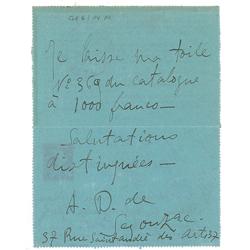 Je laisse ma toile
N° 369 du catalogue
à 1000 francs—
Salutations
distinguées—
A. D. de
Segonzac.
37 Rue Saint André des Arts 37